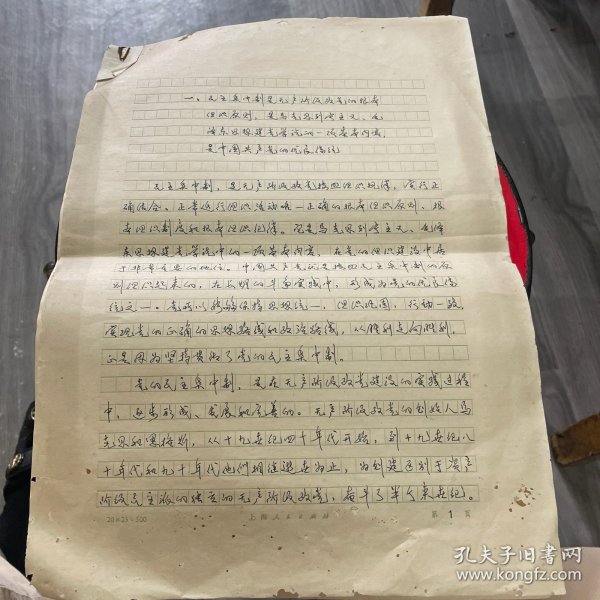 一、民主集中制是无产阶级政党的根本
组织原则，是马克思列宁主义、毛
泽东思想建党学说的一项基本内容，
是中国共产党的优良传统
民主集中制，是无产阶级政党按照组织规律，实行正
确结合、正常进行组织活动唯一正确的根本组织原则、根
本组织制度和根本组织纪律。它是马克思列宁主义、毛泽
东思想建党学说中的一项基本内容，在党的组织建设中居
于非常重要的地位。中国共产党就是按照民主集中制的原
则组织起来的，在长期的斗争实践中，形成为党的优良传
统之一。党所以能够保持思想统一，组织巩固，行动一致，
实现党的正确的思想路线和政治路线，从胜利走向胜利，
正是因为坚持贯彻了党的民主集中制。
党的民主集中制，是在无产阶级政党建设的实践过程
中，逐步形成、发展和完善的。无产阶级政党的创始人马
克思和恩格斯，从十九世纪四十年代开始，到十九世纪八
十年代和九十年代他们相继逝世为止，为创建区别于资产
阶级民主派的独立的无产阶级政党，奋斗了半个来世纪。
20×25=500 上海人民出版社 第 1 页
孔夫子旧书网
www.kongfz.com